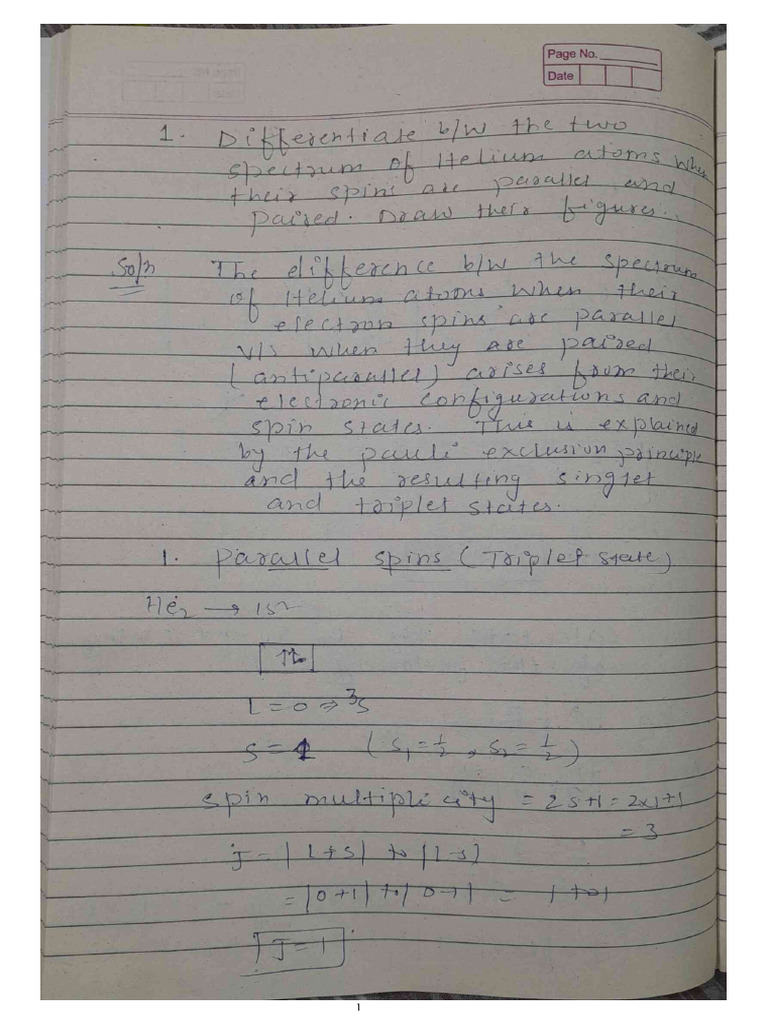 Page No.
Date
1. Differentiate b/w the two
spectrum of Helium atoms when
their spins are parallel and
paired. Draw their figures.
Soln The difference b/w the spectrum
of Helium atoms when their
electron spins are parallel
v/s when they are paired
(antiparallel) arises from their
electronic configurations and
spin states. This is explained
by the pauli exclusion principle
and the resulting singlet
and triplet states.
1. parallel spins (Triplet state)
He2 → 1s2
↑↑
L = 0 ⇒ 3S
S = 1 (S1 = 1/2, S2 = 1/2)
spin multiplicity = 2S+1 = 2x1+1
= 3
J = |L+S| to |L-S|
= |0+1| to |0-1| = 1 to 1
J = 1
1